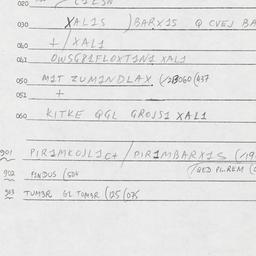 020
030 XAL1S )BARX15 Q CVEJ BA
040 + / XAL1
041 OWSGP1FLOXT1N1 XAL1
050 M1T ZUM1NDLAX (/28060 (437
051 +
060 KITKE QGL GROJS1 XAL1
901 PIR1MKOJL1C+ / PIR1MBARX1S (19
(QED PLREM (
902 PINDUS (504
903 TUMBR GL TOMBR (125 (075